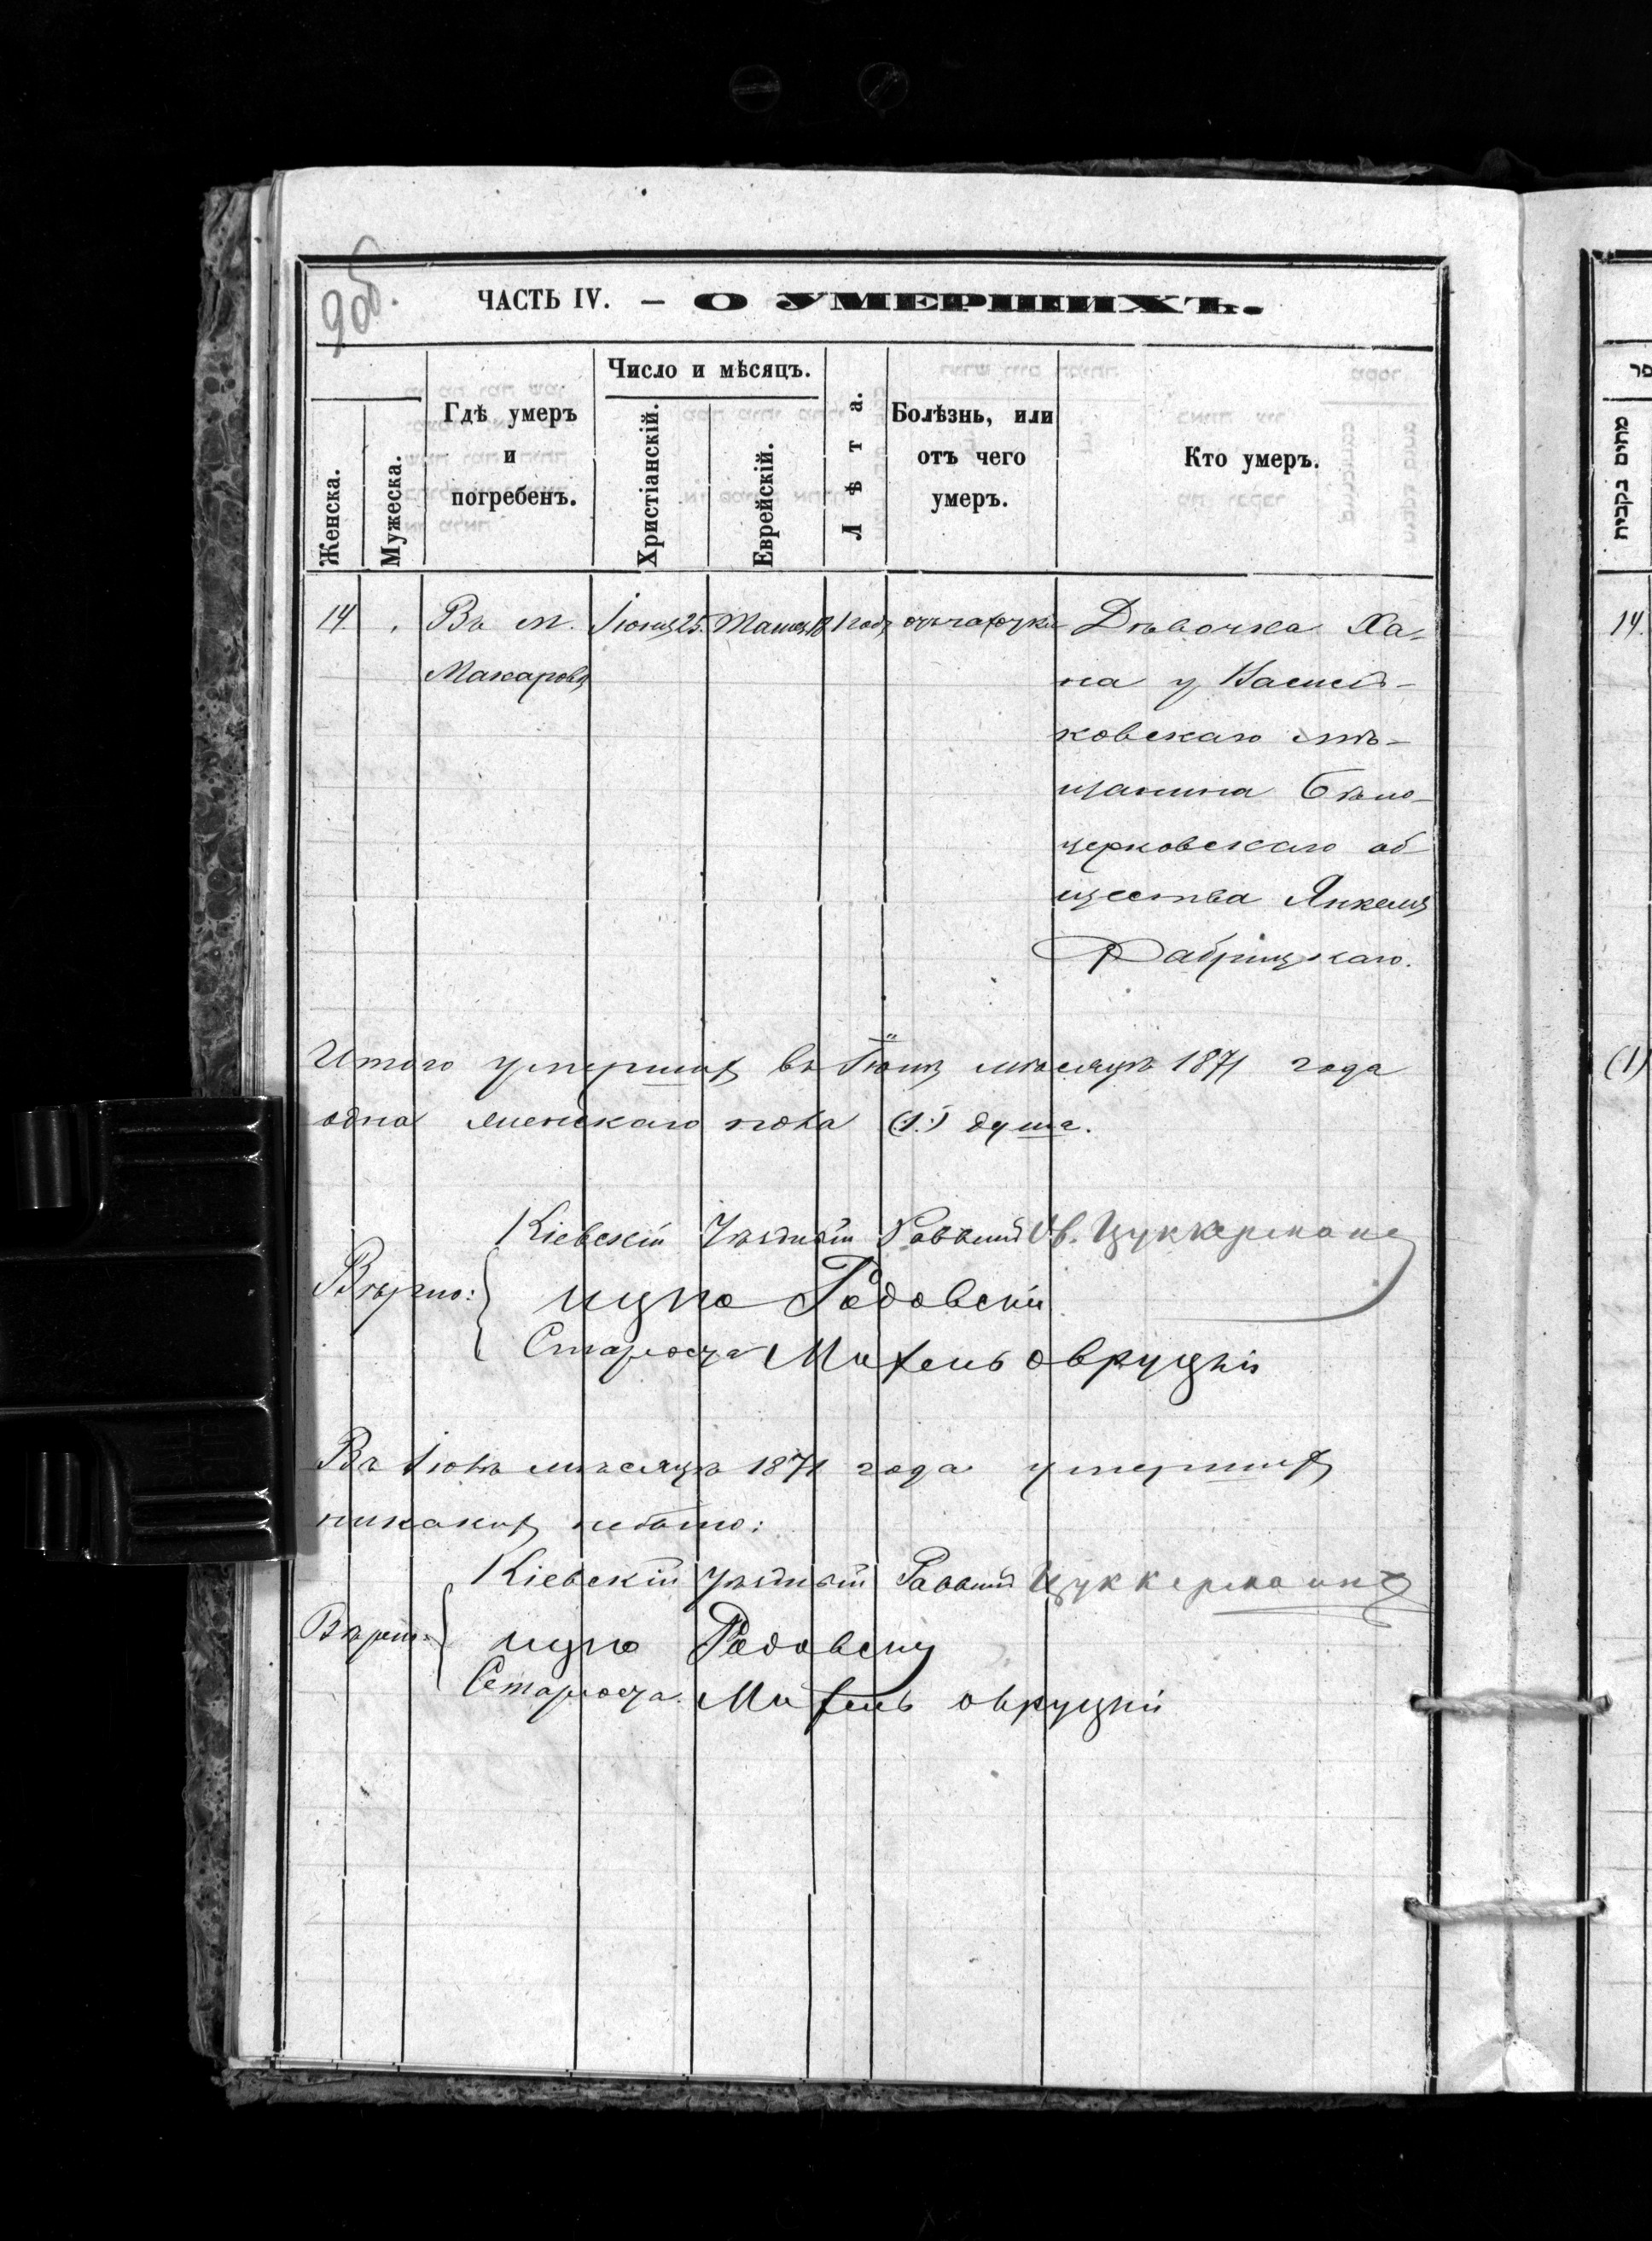 9об.
ЧАСТЬ IV. — О УМЕРШИХЪ.
Женска.
Мужеска.
Гдѣ умеръ
и
погребенъ.
Число и мѣсяцъ.
Христіанскій.
Еврейскій.
Лѣта.
Болѣзнь, или
отъ чего
умеръ.
Кто умеръ.
14. Въ м. Іюня 25. 18 1 годъ отъ чахотки Дѣвочка Ха-
Макаровѣ на у Василь-
ковскаго мѣ-
щанина Бѣло-
церковскаго об
щества Янкеля
Фабрицкаго.
Итого умершихъ въ Іюнѣ мѣсяцѣ 1871 года
одна женскаго пола (1.) душа.
Кіевскій Уѣздный Раввинъ Цуккерманъ
Вѣрно: ицко Радовскій
Староста Михель овруцкій
Въ Іюлѣ мѣсяцѣ 1871 года умершихъ
никакихъ небыло:
Кіевскій Уѣздный Раввинъ Цуккерманъ
Вѣрно: ицко Радовскій
Староста. Михель овруцкій
מתים נקבות
14.
(1)